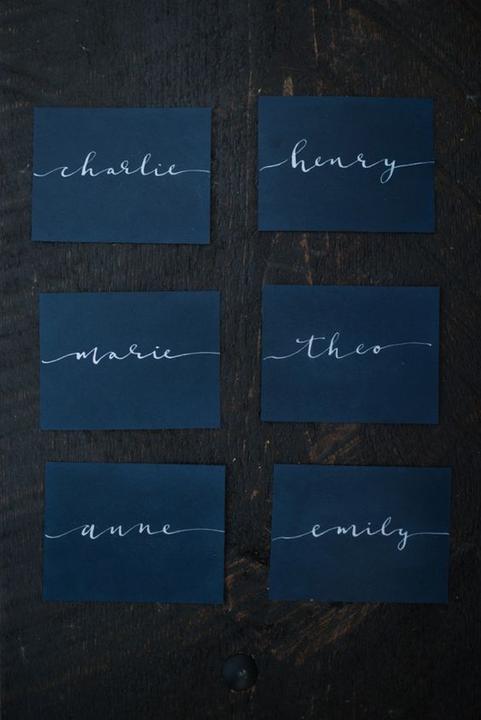 charlie
henry
marie
theo
anne
emily